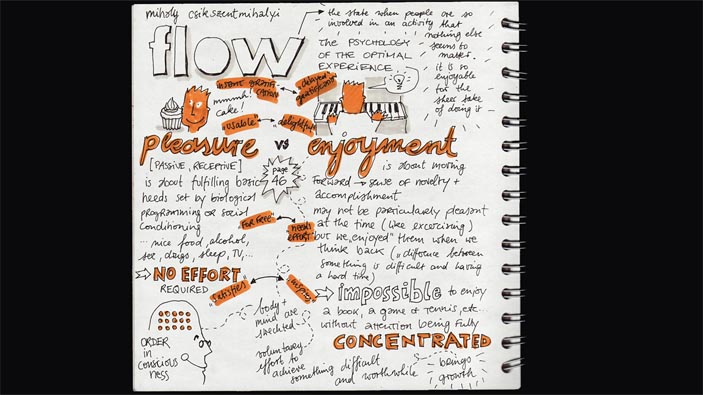 mihaly csikszentmihalyi
flow
the state when people are so
involved in an activity that
nothing else
seems to
matter.
it is so
enjoyable
for the
sheer sake
of doing it
THE PSYCHOLOGY
OF THE OPTIMAL
EXPERIENCE
INSTANT GRATIFI-
CATION
delayed
gratification
mmmh!
cake!
"usable"
"delightful"
pleasure vs enjoyment
[PASSIVE, RECEPTIVE]
is about fulfilling basic
needs set by biological
programming or social
conditioning
... nice food, alcohol,
sex, drugs, sleep, TV,...
NO EFFORT
REQUIRED
page
46
is about moving
forward → sense of novelty +
accomplishment
may not be particularly pleasant
at the time (like excercising)
but we "enjoyed" them when we
think back ("difference between
something is difficult and having
a hard time)
"FOR FREE"
NEEDS
EFFORT
"satisfies"
impossible to enjoy
a book, a game of tennis, etc...
without attention being fully
CONCENTRATED
ORDER
in
CONSCIOUS
NESS
body +
mind are
stretched
voluntary
effort to
achieve
something difficult
and worthwhile
brings
growth